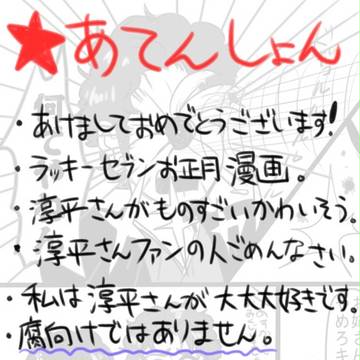 ★あてんしょん
・あけましておめでとうございます!
・ラッキーセブンお正月漫画。
・淳平さんがものすごいかわいそう。
・淳平さんファンの人ごめんなさい。
・私は淳平さんが大大大好きです。
・腐向けではありません。